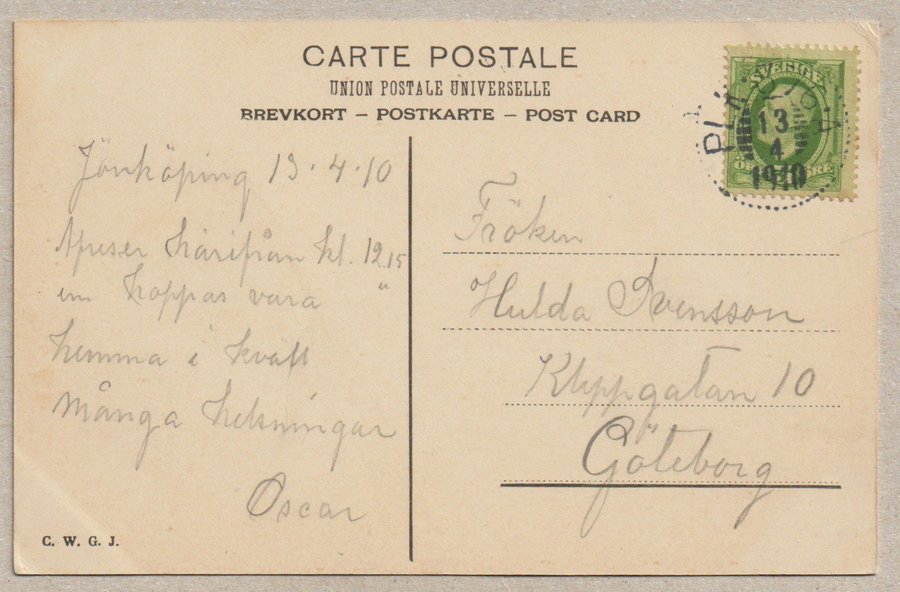 CARTE POSTALE
UNION POSTALE UNIVERSELLE
BREVKORT – POSTKARTE – POST CARD
SVERIGE
13
4
1910
Jönköping 13.4.10
härifrån kl. 12.15
em hoppas vara "
hemma i kväll
Många helsningar
Oscar
C. W. G. J.
Fröken
Hulda Svensson
Klippgatan 10
Göteborg